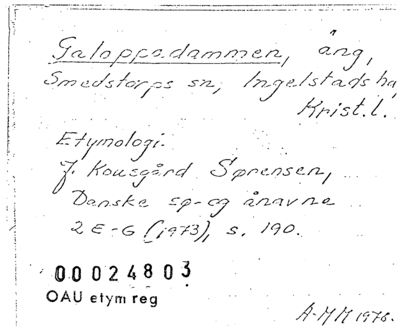 Galoppadammen, äng,
Smedstorps sn, Ingelstads hd
Krist. l.
Etymologi.
J. Kousgård Sørensen,
Danske sø- og ånavne
2 E-G (1973), s. 190.
00024803
OAU etym reg
A-MM 1976.